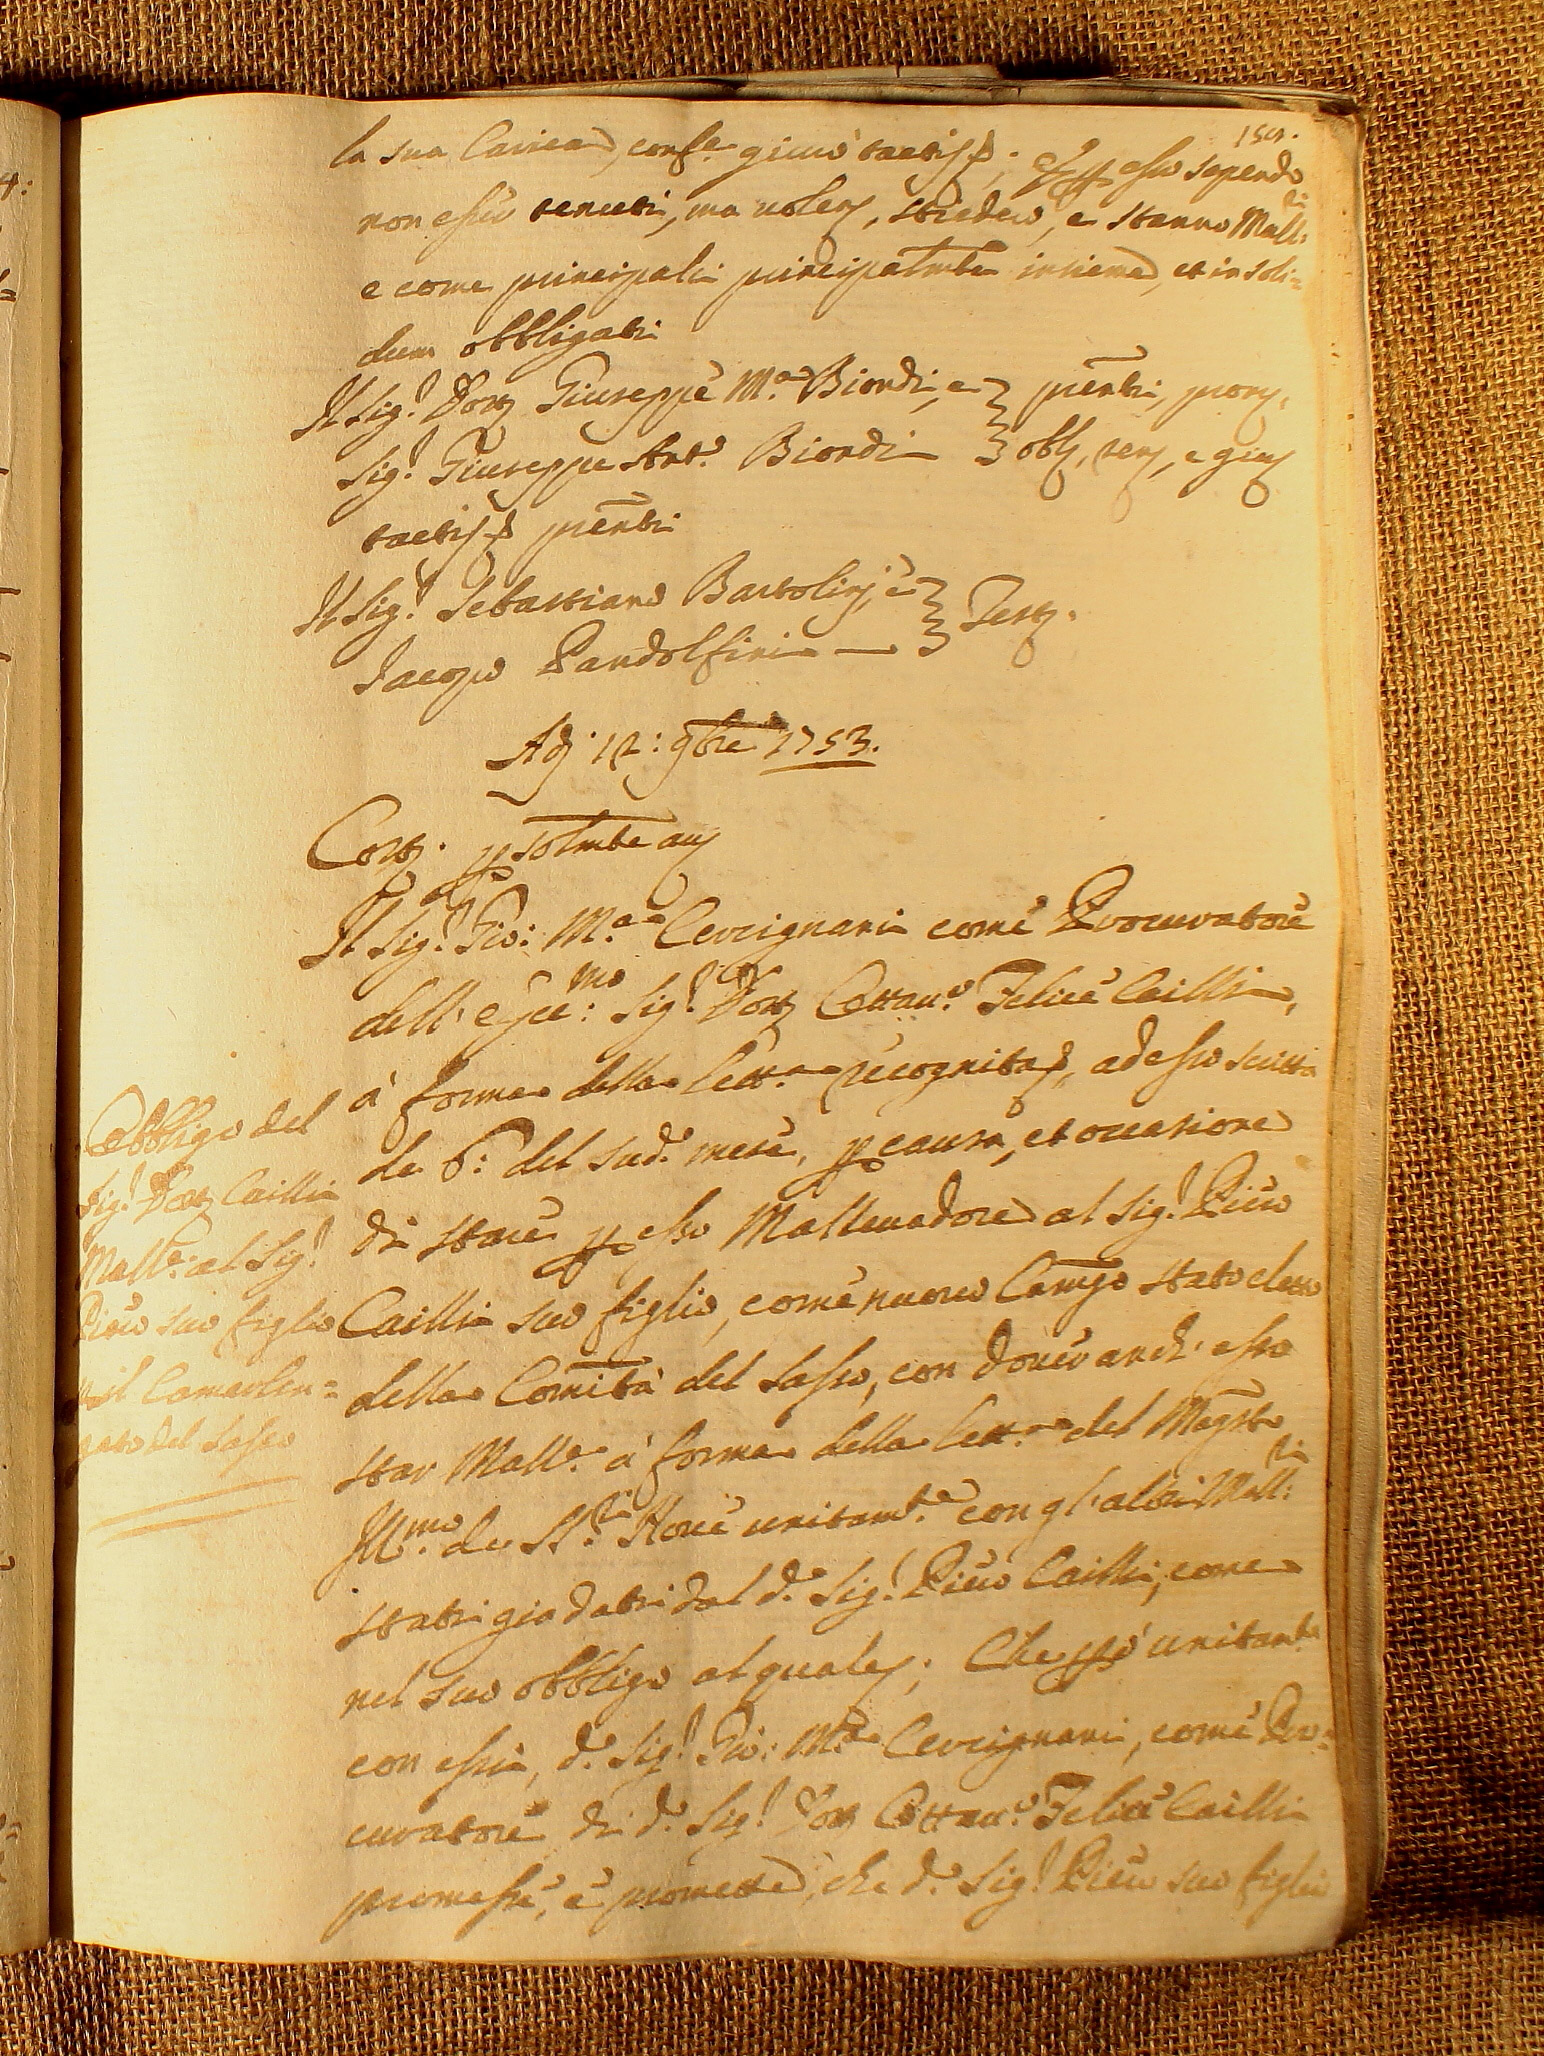 la sua Carica, conf.e giurò tactis; e essi sapendo
non esser tenuti, ma volen, stiedero, e stanno Mall:ri
e come principali principalmte insieme, et in soli=
dum obbligati
Il Sig.r Dott Giuseppe M.a Biondi, e pnti, prom,
Sig.r Giuseppe Ant.o Biondi obb, ren, e giu
tactis pnti
Il Sig.r Sebastiano Bartolini, e Test.
Jacopo Pandolfini
Adì 12: 9bre 1753.
Cost. psolmte av
Il Sig.r Gio: M.a Cercignani come Procuratore
dell' Ecc:mo Sig.r Dott Ottav.o Felice Cailli,
à forma della Lett.a recognita, ad esso scritta
de 6: del sud.o mese, p causa, et occasione
di stare p esso Mallevadore al Sig.r Piero
Cailli suo figlio, come nuovo Camgo stato eletto
della Comità del Sasso, con dover anch' esso
star Mall.e à forma della Lett.a del Magto
Ill.mo de SS.ri Nove unitam.te con gl' altri Mall:ri
stati già dati dal d.o Sig.r Piero Cailli, come
nel suo obbligo al quale; Che però unitam.te
con essi, d.o Sig.r Gio: M.a Cercignani, come Pro=
curatore di d.o Sig.r Dott Ottav.o Felice Cailli
promesse, e promette, che d.o Sig.r Piero suo figlio
Obbligo del
Sig.r Dott Cailli
Mall.e al Sig.r
Piero suo figlio
p il Camarlin=
gato del Sasso